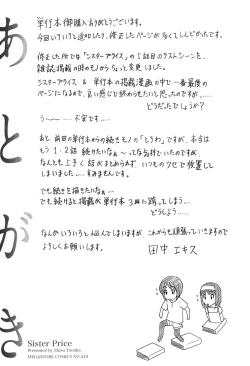 あとがき
単行本御購入ありがとうございます。
今回いろいろと追加したり、修正したページが多くてしんどかったです。
修正した所では「シスタープライス」の5話目のラストシーンを、
雑誌掲載の時のモノからなっと変更しました。
シスタープライス & 単行本の掲載漫画の中で一番最後の
ページになるので、良い感じで終わらせたいと思ったのですが……
どうだったでしょうか?
う〜〜……不安です…
あと、前回の単行本からの続きモノの「とりわ」ですが、本当は
もう1・2話続けたいなぁ〜ってな気持でいたのですが、
なんとも上手く話がまとめられず、いつものクセで放置して
しまいました……すみませんです。
でも続きを描きたいなぁ〜
でも続けると掲載が単行本3冊に跨ってしまう…
どうしよう……
なんかいろいろと悩んでしまいますが、これからも頑張っていきますので
よろしくお願いします。
田中エキス
Sister Price
Presented by Ekisu Tanaka
MEGASTORE COMICS NO.